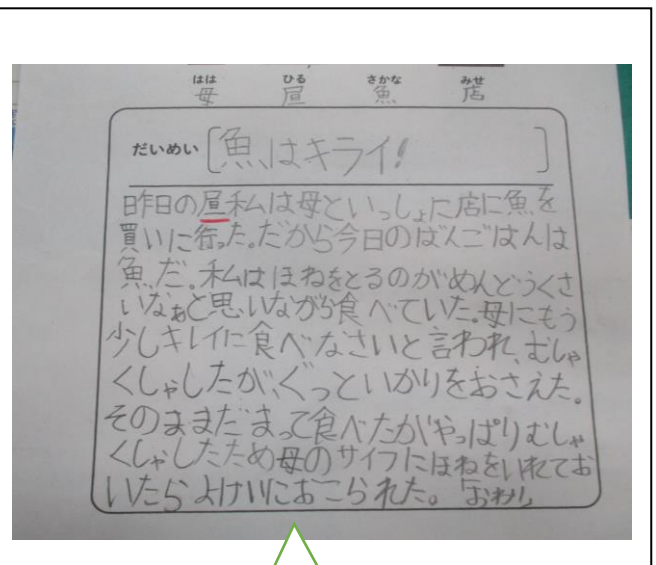 はは ひる さかな みせ
母 昼 魚 店
だいめい [魚はキライ!]
昨日の昼私は母といっしょに店に魚を
買いに行った。だから今日のばんごはんは
魚だ。私はほねをとるのがめんどうくさ
いなぁと思いながら食べていた。母にもう
少しキレイに食べなさいと言われ、むしゃ
くしゃしたが、ぐっといかりをおさえた。
そのままだまって食べたがやっぱりむしゃ
くしゃしたため母のサイフにほねをいれてお
いたらよけいにおこられた。「おわり」